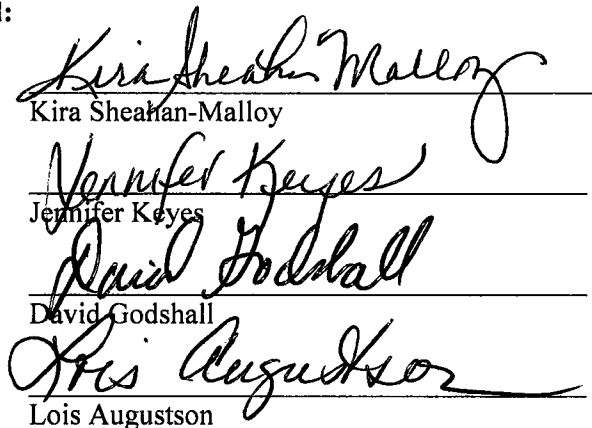 :
Kira Sheahan Malloy
Kira Sheahan-Malloy
Jennifer Keyes
Jennifer Keyes
David Godshall
David Godshall
Lois Augustson
Lois Augustson